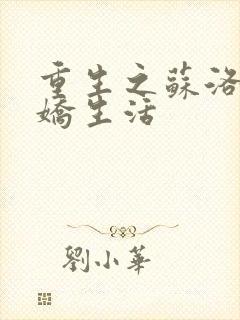 重生之蘇洛
嬌生活
劉小華